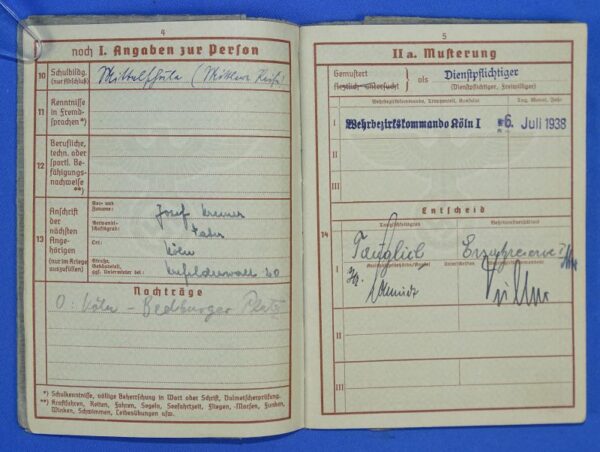 4
noch I. Angaben zur Person
10 Schulbildg. (nur Abschluß) Mittelschule (Mittlere Reife)
11 Kenntnisse in Fremdsprachen *)
12 Berufliche, techn. oder sportl. Befähigungsnachweise **)
13 Anschrift der nächsten Angehörigen (nur im Kriege auszufüllen)
Vor- und Zuname: Josef Kremer
Verwandtschaftsgrad: Vater
Ort: Köln
Straße, Gebäudeteil, ggf. Untermieter bei:
Nachträge
O: Köln - Bedburger Platz
*) Schulkenntnisse, völlige Beherrschung in Wort oder Schrift, Dolmetscherprüfung.
**) Kraftfahren, Reiten, Fahren, Segeln, Seefahrtzeit, Fliegen, Morsen, Funken,
Winken, Schwimmen, Leibesübungen usw.
5
II a. Musterung
Gemustert als Dienstpflichtiger
Ärztlich untersucht (Dienstpflichtiger, Freiwilliger)
Wehrbezirkskommando, Truppenteil, Konsulat Tag, Monat, Jahr
I Wehrbezirkskommando Köln I 6. Juli 1938
II
III
14 Entscheid
Tauglichkeitsgrad Wehrdienstverhältnis
I Tauglich Ersatzreserve I
Schmidt
II
III